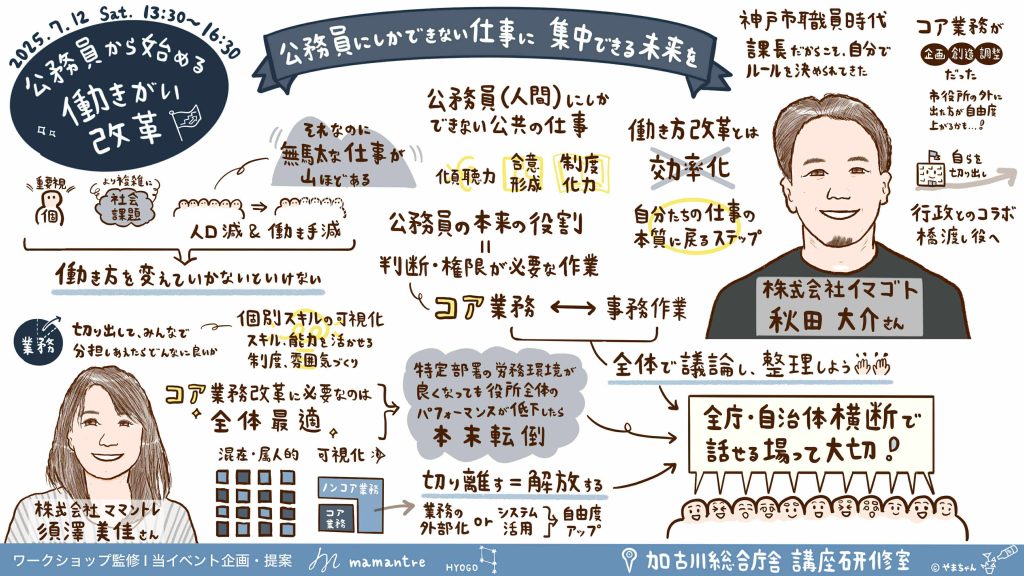 2025.7.12 Sat. 13:30～16:30
公務員から始める
働きがい
改革
公務員にしかできない仕事に 集中できる未来を
重要視
個
より複雑に
社会
課題
人口減 & 働き手減
それなのに
無駄な仕事が
山ほどある
働き方を変えていかないといけない
公務員(人間)にしか
できない公共の仕事
傾聴力
合意
形成
制度
化力
公務員の本来の役割
=
判断・権限が必要な作業
コア業務 ⟷ 事務作業
働き方改革とは
効率化
自分たちの仕事の
本質に戻るステップ
神戸市職員時代
課長だからこそ、自分で
ルールを決められてきた
コア業務が
企画 創造 調整
だった
市役所の外に
出た方が自由度
上がるかも…!
自らを
切り出し
行政とのコラボ
橋渡し役へ
株式会社イマゴト
秋田 大介さん
業務
切り出して、みんなで
分担しあえたらどんなに良いか
個別スキルの可視化
スキル・能力を活かせる
制度、雰囲気づくり
コア業務改革に必要なのは
全体最適
混在・属人的
可視化
ノンコア業務
コア
業務
特定部署の労務環境が
良くなっても役所全体の
パフォーマンスが低下したら
本末転倒
切り離す=解放する
業務の
外部化
or
システム
活用
自由度
アップ
全体で議論し、整理しよう
全庁・自治体横断で
話せる場って大切!
株式会社 ママントレ
須澤 美佳さん
ワークショップ監修 | 当イベント企画・提案
mamantre
HYOGO
加古川総合庁舎 講座研修室
©やまちゃん